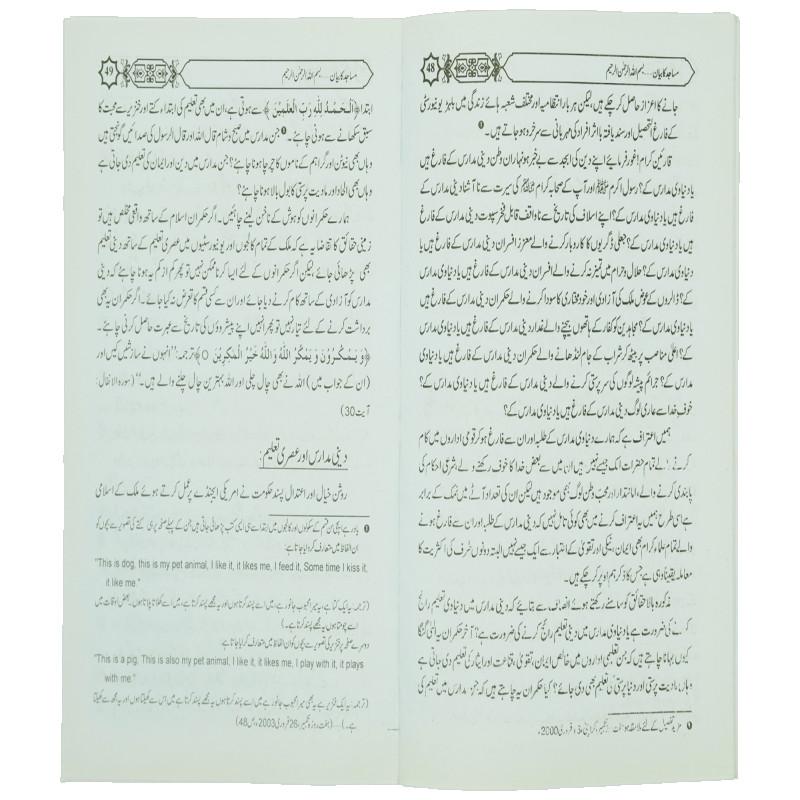 48
مساجد کا بیان.....بسم اللہ الرحمٰن الرحیم
جانے کا اعزاز حاصل کر چکے ہیں، لیکن ہر بار انتظامیہ اور مختلف شعبہ ہائے زندگی میں بلیئرڈ یونیورسٹی
کے فارغ التحصیل اور سند یافتہ بااثر افراد کی مہربانی سے سرخرو ہو جاتے ہیں۔
قارئین کرام! غور فرمائیے اپنے دین کی ابجد سے بے خبر ہونہاران وطن دینی مدارس کے فارغ ہیں
یا دنیاوی مدارس کے؟ رسول اکرم ﷺ اور آپ کے صحابہ کرام کی سیرت سے نا آشنا دینی مدارس کے
فارغ ہیں یا دنیاوی مدارس کے؟ اپنے اسلاف کی تاریخ سے ناواقف قابل فخر سپوت دینی مدارس کے فارغ
ہیں یا دنیاوی مدارس کے؟ جعلی ڈگریوں کا کاروبار کرنے والے معزز افسران دینی مدارس کے فارغ ہیں یا
دنیاوی مدارس کے؟ حلال و حرام میں تمیز نہ کرنے والے افسران دینی مدارس کے فارغ ہیں یا دنیاوی مدارس
کے؟ ڈالروں کے عوض ملک کی آزادی اور خود مختاری کا سودا کرنے والے حکمران دینی مدارس کے فارغ ہیں یا
دنیاوی مدارس کے؟ مجاہدین کو کفار کے ہاتھوں بیچنے والے غدار دینی مدارس کے فارغ ہیں یا دنیاوی مدارس
کے؟ اعلیٰ مناصب پر بیٹھ کر شراب کے جام لنڈھانے والے حکمران دینی مدارس کے فارغ ہیں یا دنیاوی
مدارس کے؟ جرائم پیشہ لوگوں کی سرپرستی کرنے والے دینی مدارس کے فارغ ہیں یا دنیاوی مدارس کے؟
خوف خدا سے عاری لوگ دینی مدارس کے فارغ ہیں یا دنیاوی مدارس کے؟
ہمیں اعتراف ہے کہ ہمارے دنیاوی مدارس کے طلبہ اور ان سے فارغ ہو کر قومی اداروں میں کام
کرنے والے تمام حضرات ایک جیسے نہیں ہیں ان میں سے بعض خدا کا خوف رکھنے والے، شرعی احکام کی
پابندی کرنے والے، امانتدار اور محب وطن لوگ بھی موجود ہیں لیکن ان کی تعداد آٹے میں نمک کے برابر
ہے اسی طرح ہمیں یہ اعتراف کرنے میں بھی کوئی تامل نہیں کہ دینی مدارس کے طلبہ اور ان سے فارغ ہونے
والے تمام علماء کرام بھی ایمان، نیکی اور تقویٰ کے اعتبار سے ایک جیسے نہیں البتہ دونوں طرف کی اکثریت کا
معاملہ یقیناً وہی ہے جس کا ذکر ہم اوپر کر چکے ہیں۔
مذکورہ بالا حقائق کو سامنے رکھتے ہوئے انصاف سے بتائیے کہ دینی مدارس میں دنیاوی تعلیم رائج
کرنے کی ضرورت ہے یا دنیاوی مدارس میں دینی تعلیم رائج کرنے کی ضرورت ہے؟ آخر حکمران یہ الٹی گنگا
کیوں بہانا چاہتے ہیں کہ جن تعلیمی اداروں میں خالص ایمان، تقویٰ، قناعت اور ایثار کی تعلیم دی جاتی ہے
وہاں مادیت پرستی اور دنیا پرستی کی تعلیم بھی دی جائے؟ کیا حکمران یہ چاہتے ہیں کہ جن مدارس میں تعلیم کی
مزید تفصیل کے لئے ملاحظہ ہو ہفت روزہ تکبیر، کراچی، فروری 2000ء
49
مساجد کا بیان.....بسم اللہ الرحمٰن الرحیم
ابتدا ﴿اَلْحَمْدُ لِلّٰهِ رَبِّ الْعٰلَمِيْنَ﴾ سے ہوتی ہے، ان میں بھی تعلیم کی ابتداء کتے اور خنزیر سے محبت کا
سبق سکھانے سے ہونی چاہئے۔ جن مدارس میں صبح و شام قال اللہ اور قال الرسول کی صدائیں گونجتی ہیں
وہاں بھی نیوٹن اور گراہم کے ناموں کا چرچا ہونا چاہئے؟ جن مدارس میں دین اور ایمان کی تعلیم دی جاتی ہے
وہاں بھی الحاد اور مادیت پرستی کا بول بالا ہونا چاہئے؟
ہمارے حکمرانوں کو ہوش کے ناخن لینے چاہئیں۔ اگر حکمران اسلام کے ساتھ واقعی مخلص ہیں تو
زمینی حقائق کا تقاضا یہ ہے کہ ملک کے تمام کالجوں اور یونیورسٹیوں میں عصری تعلیم کے ساتھ دینی تعلیم
بھی پڑھائی جائے لیکن اگر حکمرانوں کے لئے ایسا کرنا ممکن نہیں تو پھر کم از کم یہ ہونا چاہئے کہ دینی
مدارس کو آزادی کے ساتھ کام کرنے دیا جائے اور ان سے کسی قسم کا تعرض نہ کیا جائے۔ اگر حکمران یہ بھی
برداشت کرنے کے لئے تیار نہیں تو پھر انہیں اپنے پیشروؤں کی تاریخ سے عبرت حاصل کرنی چاہئے۔
﴿وَيَمْكُرُوْنَ وَيَمْكُرُ اللّٰهُ وَاللّٰهُ خَيْرُ الْمٰكِرِيْنَ ○﴾ ترجمہ: "انہوں نے سازشیں کیں اور
(ان کے جواب میں) اللہ نے بھی چال چلی اور اللہ بہترین چال چلنے والے ہیں۔" (سورہ الانفال:
آیت 30)
دینی مدارس اور عصری تعلیم:
روشن خیال اور اعتدال پسند حکومت نے امریکی ایجنڈے پر عمل کرتے ہوئے ملک کے اسلامی
یاد رہے ایچی سن قسم کے سکولوں اور کالجوں میں ابتدا سے ہی ایسی کتب پڑھائی جاتی ہیں جن کے پہلے صفحہ پر ہی کتے کی تصویر سے بچوں کو
ان الفاظ میں متعارف کروایا جاتا ہے:
"This is dog, this is my pet animal, I like it, it likes me, I feed it, Some time I kiss it,
it like me."
(ترجمہ: یہ ایک کتا ہے، یہ میرا محبوب جانور ہے، میں اسے پسند کرتا ہوں یہ مجھے پسند کرتا ہے، میں اسے کھلاتا پلاتا ہوں۔ بعض اوقات میں
اسے چومتا ہوں یہ مجھے پسند کرتا ہے۔)
دوسرے صفحہ پر خنزیر کی تصویر سے بچوں کو ان الفاظ میں متعارف کروایا جاتا ہے:
"This is a pig. This is also my pet animal, I like it, it likes me, I play with it, it plays
with me."
(ترجمہ: یہ خنزیر ہے یہ بھی میرا محبوب جانور ہے میں اسے پسند کرتا ہوں یہ مجھے پسند کرتا ہے میں اس سے کھیلتا ہوں اور یہ مجھ سے کھیلتا
ہے۔)—(ہفت روزہ تکبیر، 26 فروری 2003ء، ص 48)